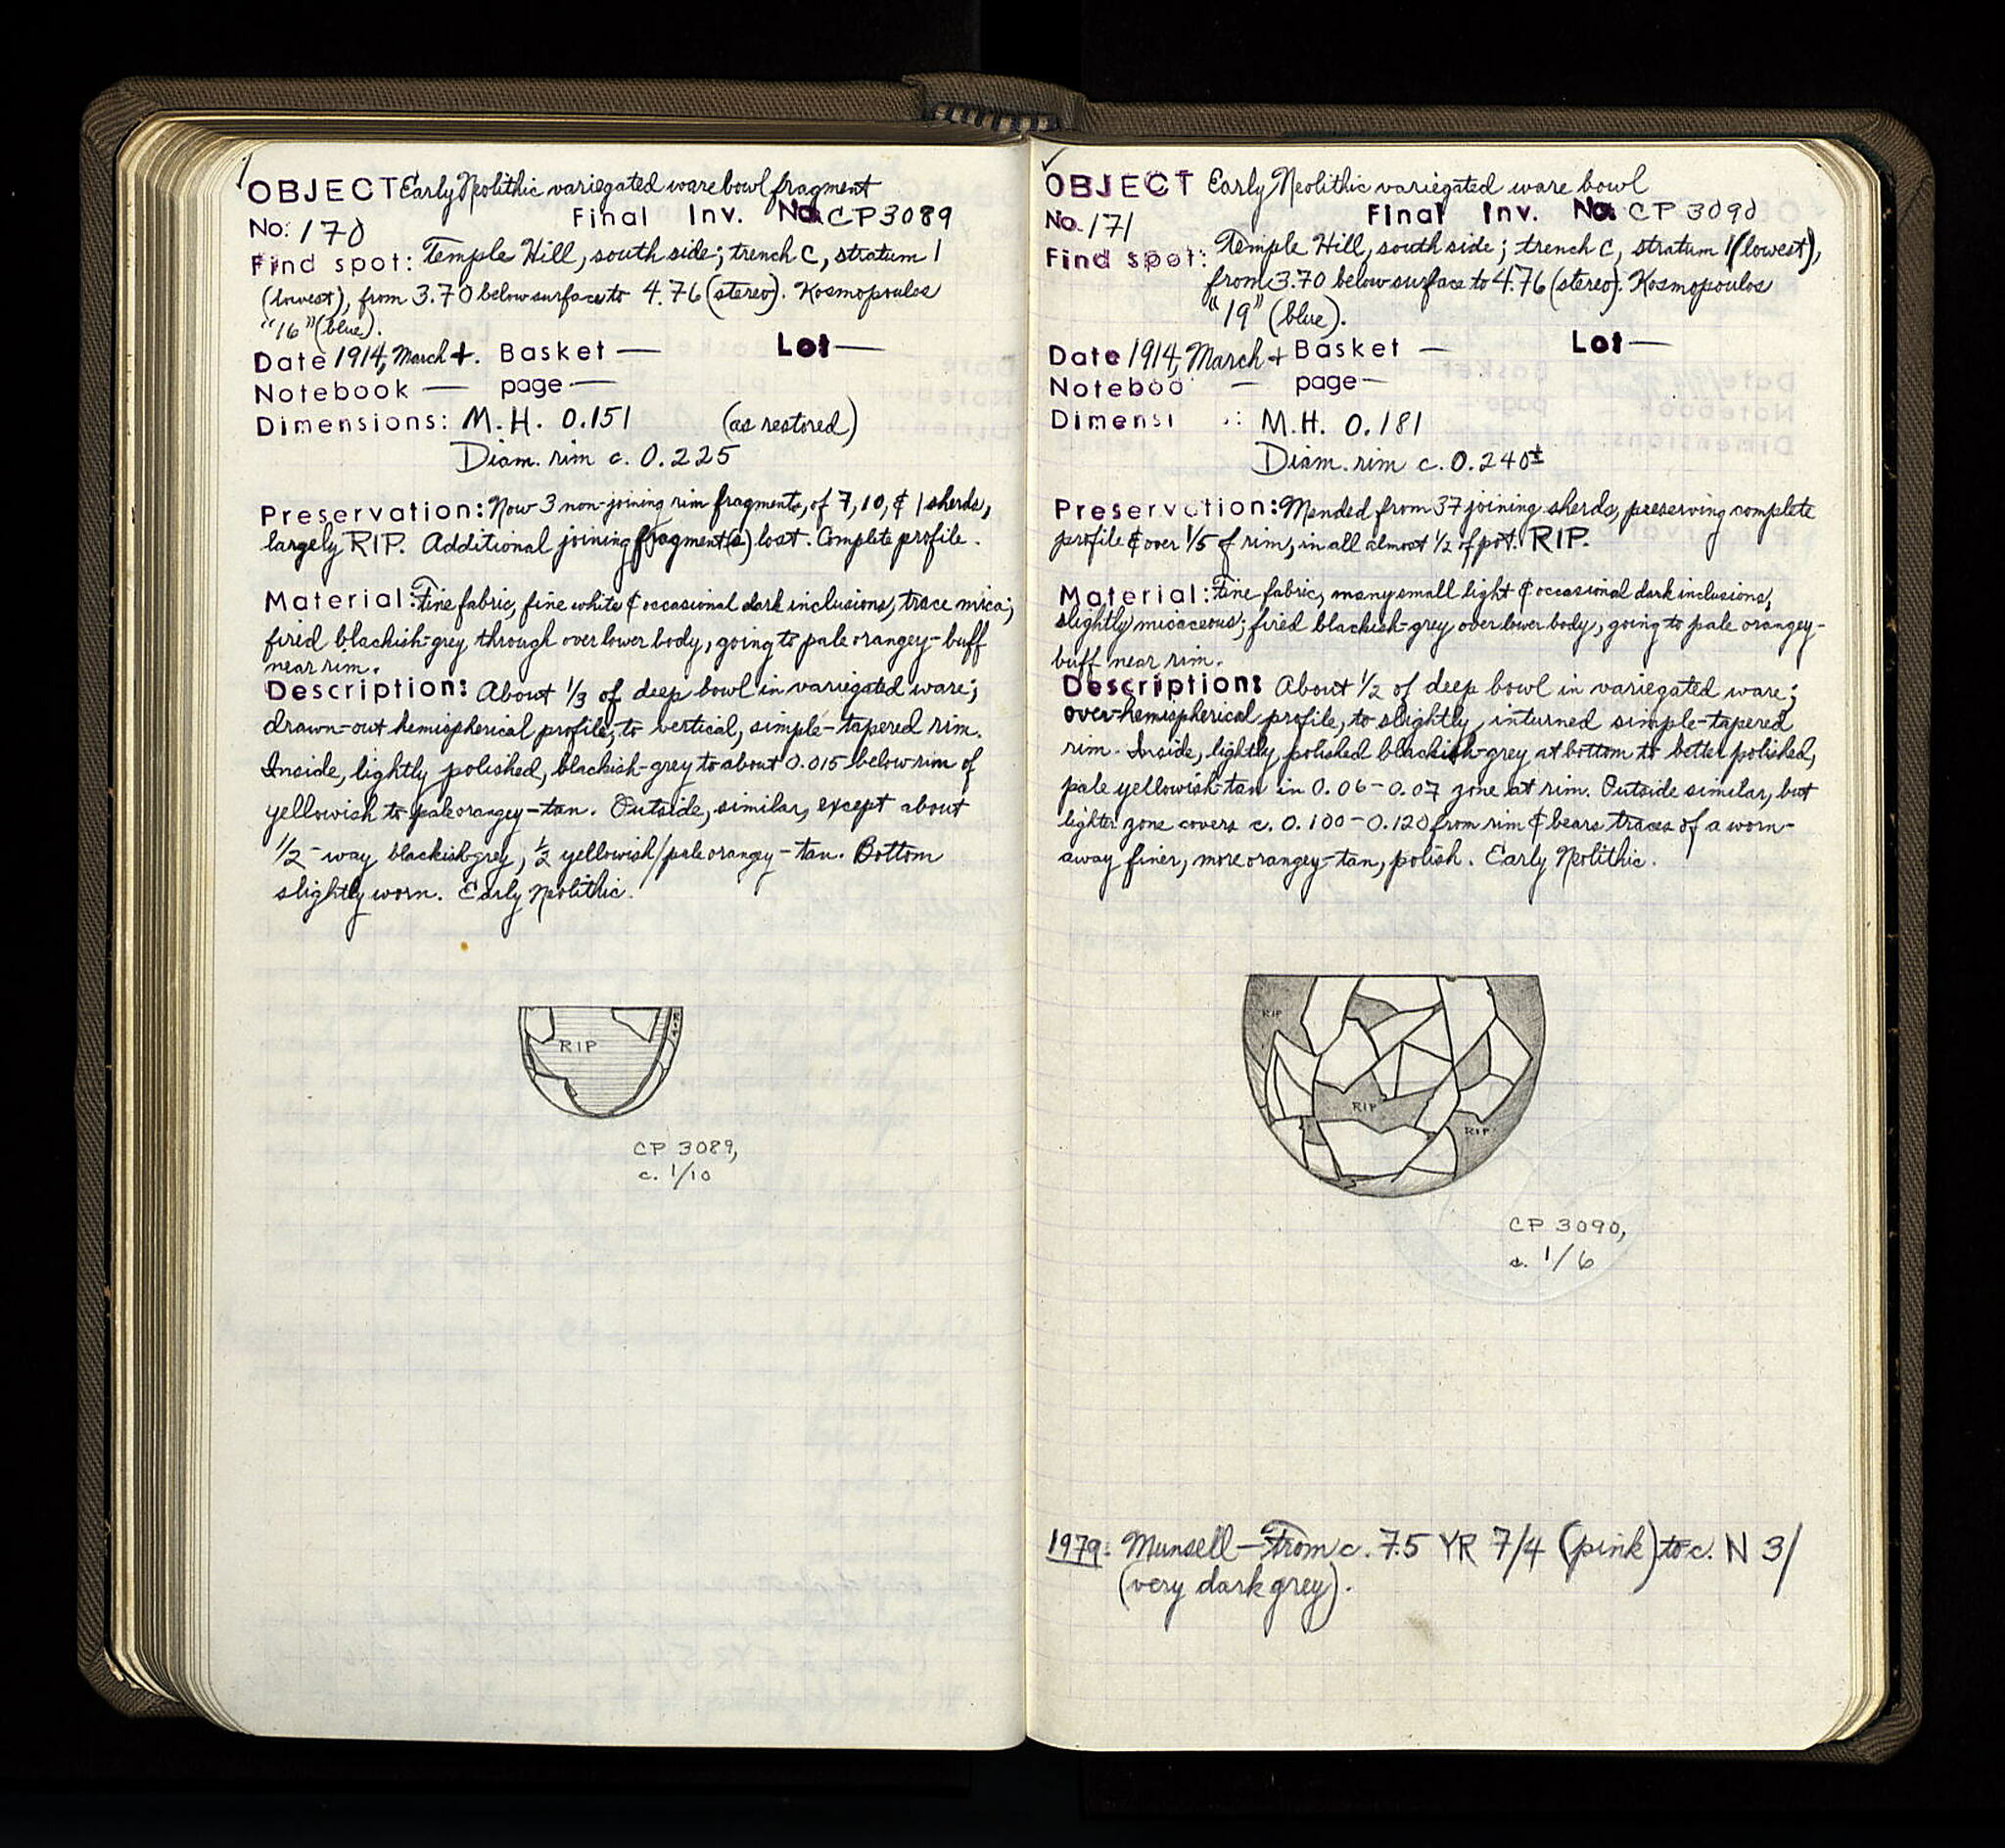 OBJECT Early Neolithic variegated ware bowl fragment
No: 170 Final Inv. No. CP3089
Find spot: Temple Hill, south side; trench C, stratum 1
(lowest), from 3.70 below surface to 4.76 (stereo). Kosmopoulos
"16" (blue).
Date 1914, March +. Basket — Lot —
Notebook — page —
Dimensions: M.H. 0.151 (as restored)
Diam. rim c. 0.225
Preservation: Now 3 non-joining rim fragments, of 7, 10, & 1 sherds,
largely RIP. Additional joining fragment(s) lost. Complete profile.
Material: Fine fabric, fine white & occasional dark inclusions, trace mica;
fired blackish-grey through over lower body, going to pale orangey-buff
near rim.
Description: About 1/3 of deep bowl in variegated ware;
drawn-out hemispherical profile, to vertical, simple-tapered rim.
Inside, lightly polished, blackish-grey to about 0.015 below rim of
yellowish to pale orangey-tan. Outside, similar, except about
1/2-way blackish-grey, 1/2 yellowish/pale orangey-tan. Bottom
slightly worn. Early Neolithic.
RIP
RIP
CP 3089,
c. 1/10
OBJECT Early Neolithic variegated ware bowl
No. 171 Final Inv. No. CP 3090
Find spot: Temple Hill, south side; trench C, stratum 1 (lowest),
from 3.70 below surface to 4.76 (stereo). Kosmopoulos
"19" (blue).
Date 1914, March + Basket — Lot —
Noteboo — page —
Dimensi .: M.H. 0.181
Diam. rim c. 0.240±
Preservation: Mended from 37 joining sherds, preserving complete
profile & over 1/5 of rim, in all almost 1/2 of pot. RIP.
Material: Fine fabric, many small light & occasional dark inclusions,
slightly micaceous; fired blackish-grey over lower body, going to pale orangey-
buff near rim.
Description: About 1/2 of deep bowl in variegated ware;
over-hemispherical profile, to slightly inturned simple-tapered
rim. Inside, lightly polished blackish-grey at bottom to better polished,
pale yellowish-tan in 0.06-0.07 zone at rim. Outside similar, but
lighter zone covers c. 0.100-0.120 from rim & bears traces of a worn-
away finer, more orangey-tan, polish. Early Neolithic.
RIP
RIP
RIP
CP 3090,
c. 1/6
1979: Munsell — From c. 7.5 YR 7/4 (pink) to c. N 3/
(very dark grey).